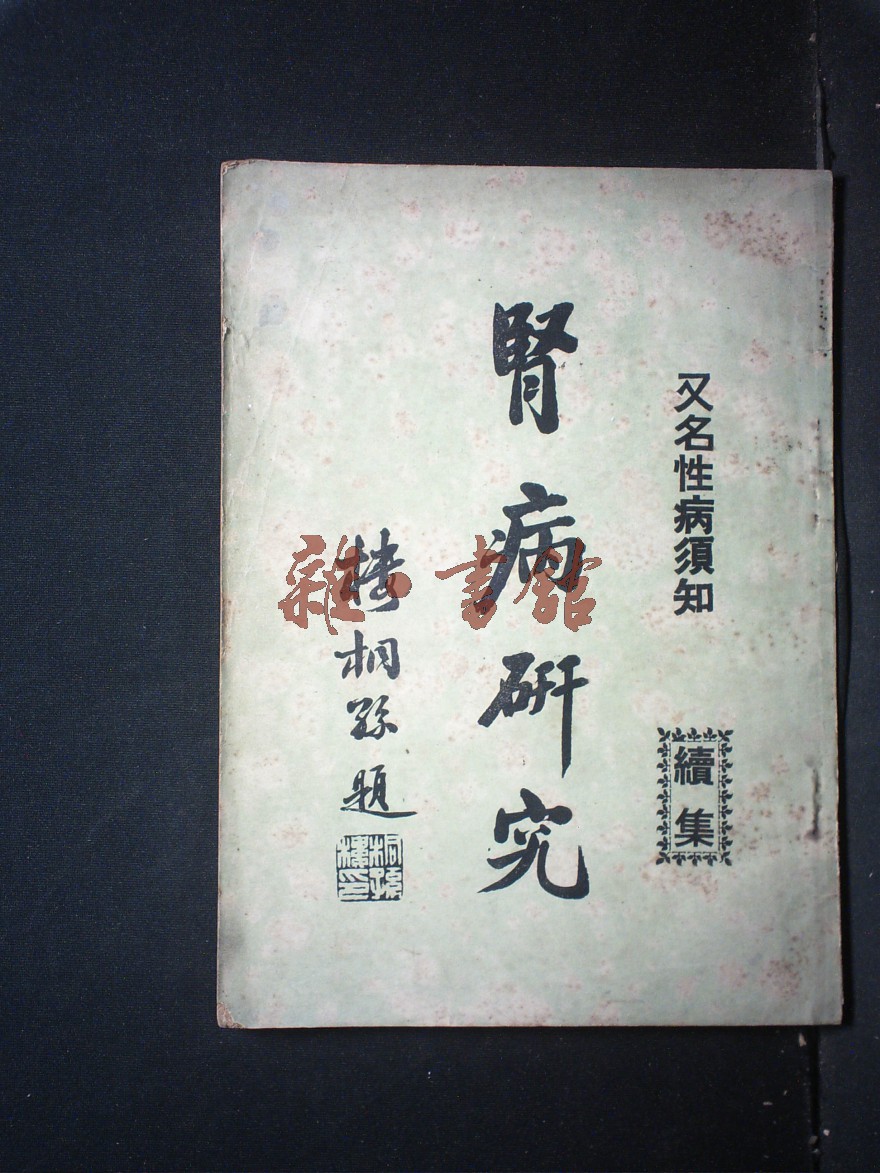 又名性病須知
續集
腎病研究
樓桐孫題
樓桐孫印
雜·書館